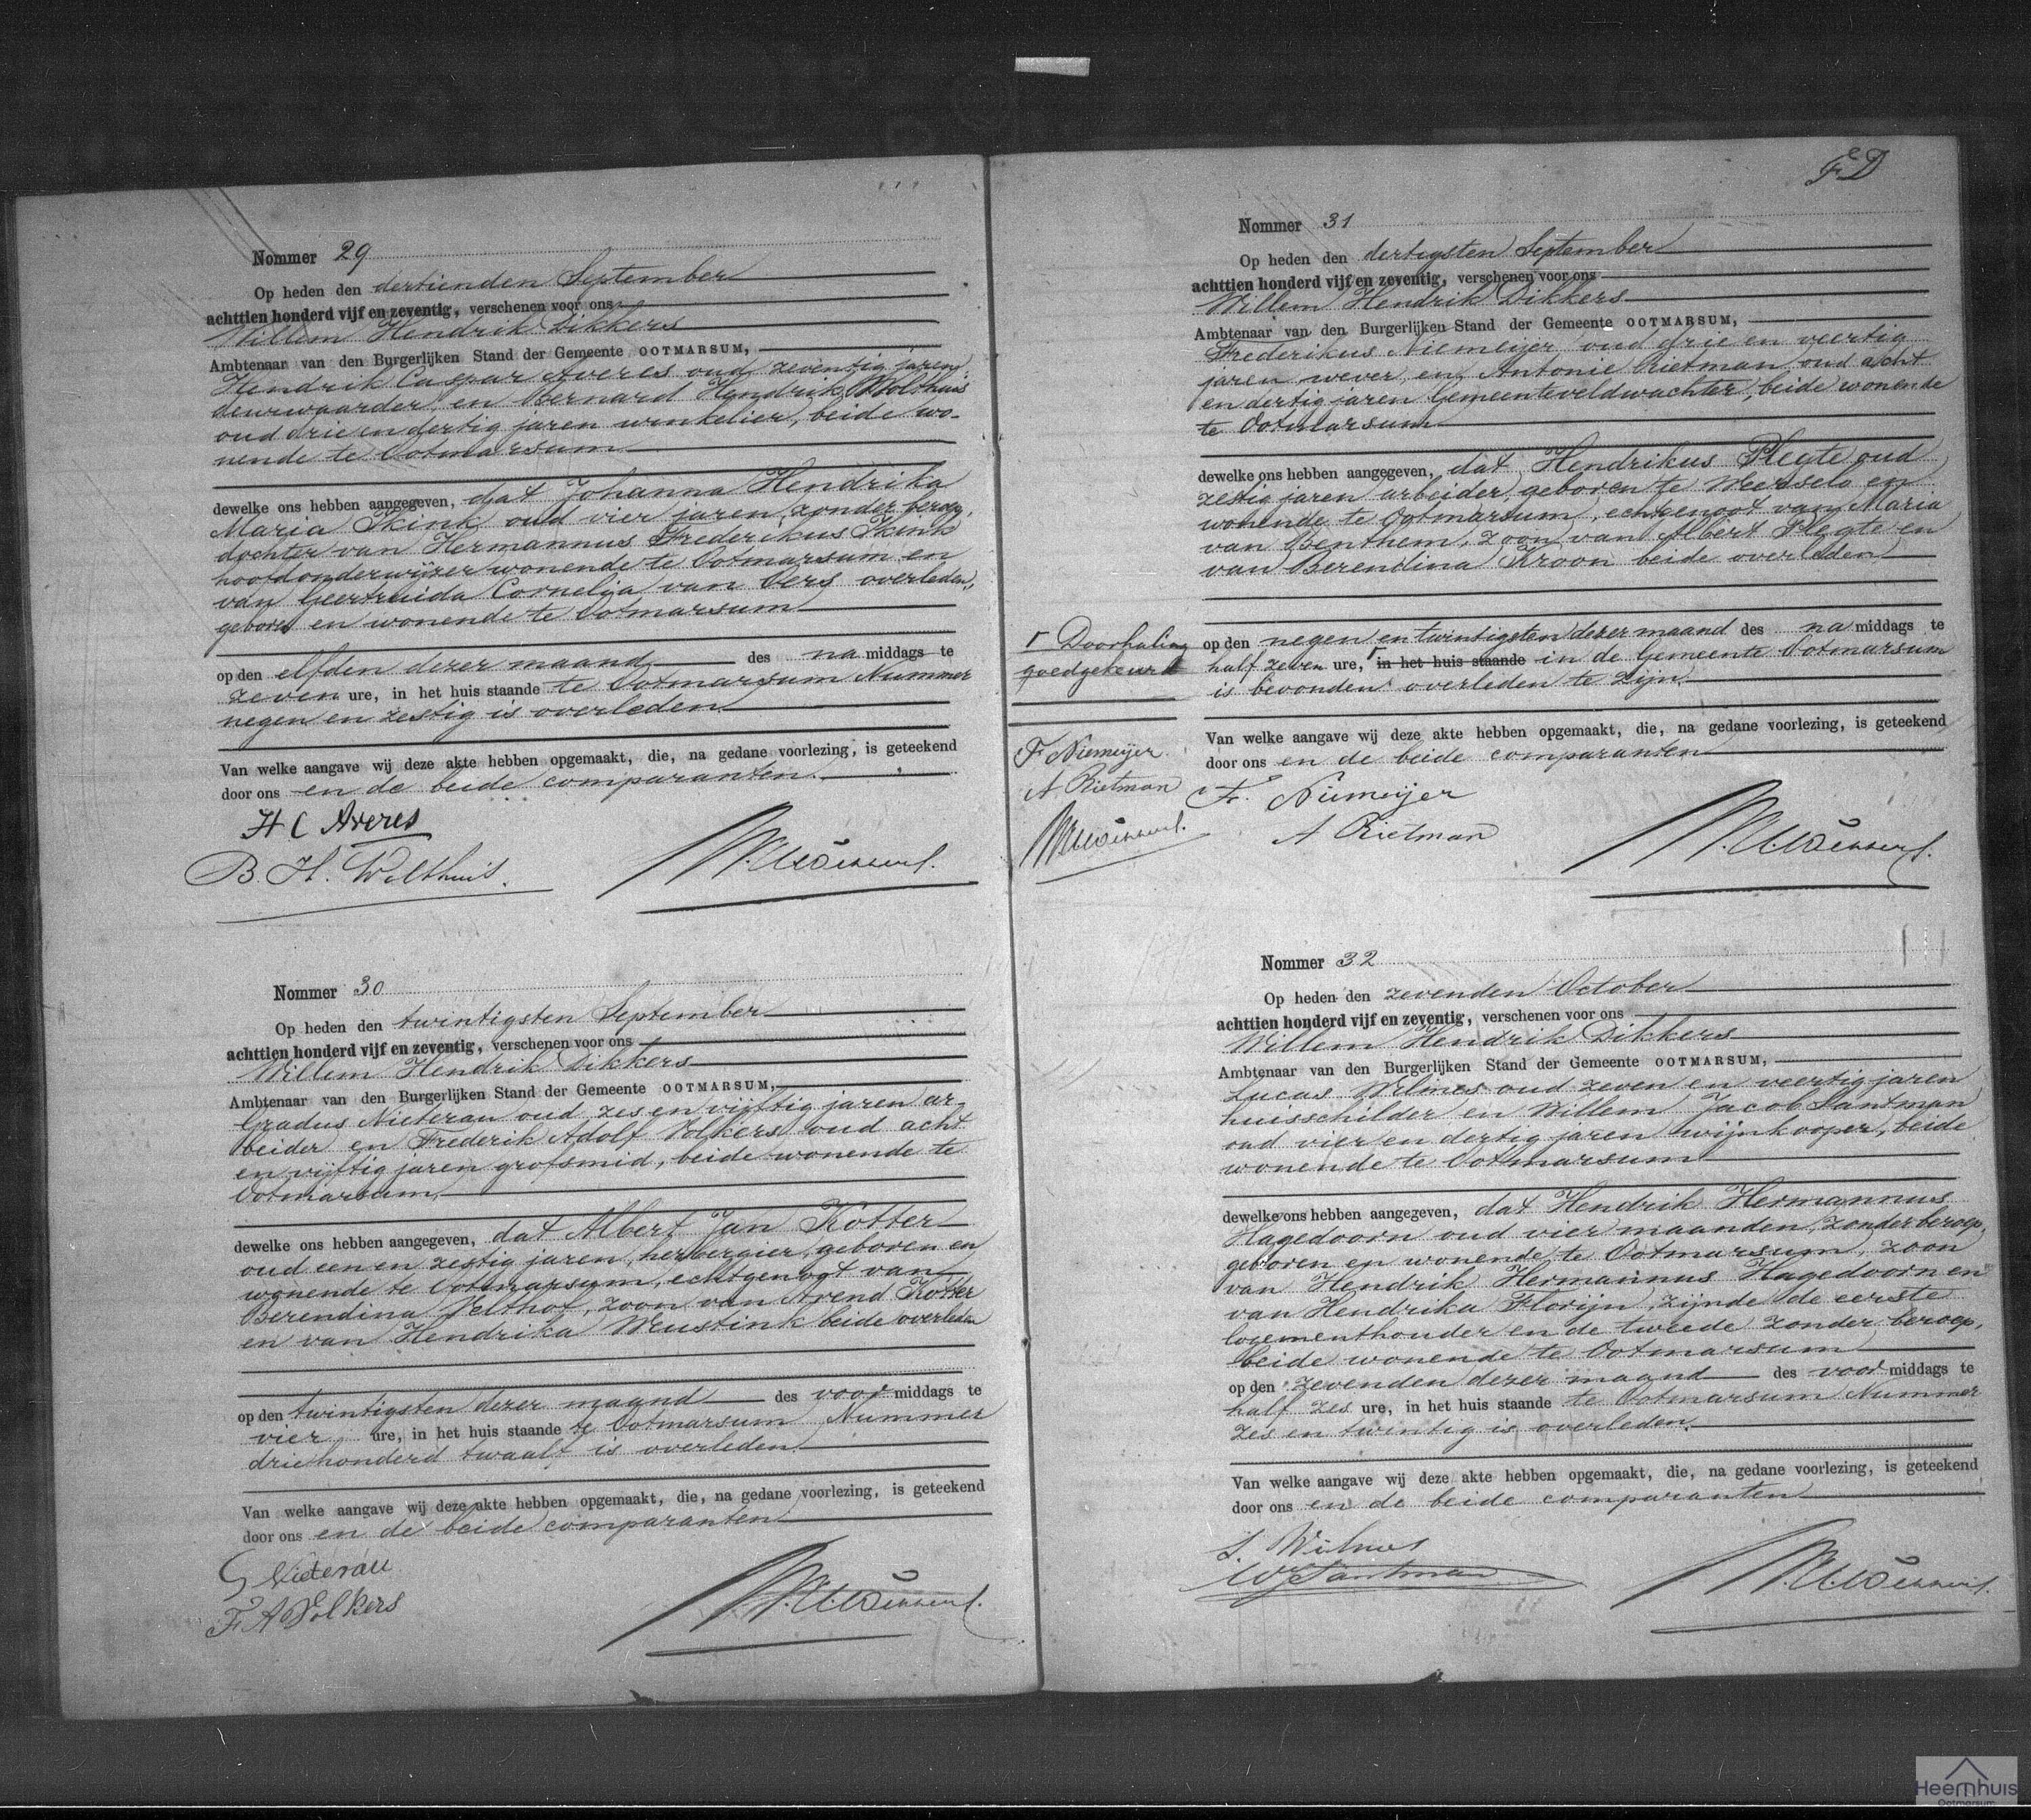 Nommer 29
Op heden den dertienden September
achttien honderd vijf en zeventig, verschenen voor ons
Willem Hendrik Dikkers
Ambtenaar van den Burgerlijken Stand der Gemeente OOTMARSUM,
Hendrik Caspar Averes oud zeventig jaren
deurwaarder, en Bernard Hendrik Wolthuis
oud drie en dertig jaren winkelier, beide wo-
nende te Ootmarsum
dewelke ons hebben aangegeven, dat Johanna Hendrika
Maria Skink oud vier jaren, zonder beroep,
dochter van Hermannus Frederikus Skink
hoofdonderwijzer wonende te Ootmarsum en
van Geertruida Cornelia van Oers overleden,
geboren en wonende te Ootmarsum
op den elfden dezer maand des na middags te
zeven ure, in het huis staande te Ootmarsum Nummer
negen en zestig is overleden
Van welke aangave wij deze akte hebben opgemaakt, die, na gedane voorlezing, is geteekend
door ons en de beide comparanten.
H C Averes
B. H. Wolthuis.
Nommer 30
Op heden den twintigsten September
achttien honderd vijf en zeventig, verschenen voor ons
Willem Hendrik Dikkers
Ambtenaar van den Burgerlijken Stand der Gemeente OOTMARSUM,
Gradus Nieterau oud zes en vijftig jaren ar-
beider en Frederik Adolf Volkers oud acht
en vijftig jaren grofsmid, beide wonende te
Ootmarsum,
dewelke ons hebben aangegeven, dat Albert Jan Kötter
oud een en zestig jaren, herbergier, geboren en
wonende te Ootmarsum, echtgenoot van
Berendina Velthof, zoon van Arend Kötter
en van Hendrika Weustink beide overleden
op den twintigsten dezer maand des voor middags te
vier ure, in het huis staande te Ootmarsum Nummer
driehonderd twaalf is overleden
Van welke aangave wij deze akte hebben opgemaakt, die, na gedane voorlezing, is geteekend
door ons en de beide comparanten
G Nieterau
F A Volkers
F D
Nommer 31
Op heden den dertigsten September
achttien honderd vijf en zeventig, verschenen voor ons
Willem Hendrik Dikkers
Ambtenaar van den Burgerlijken Stand der Gemeente OOTMARSUM,
Frederikus Niemeijer oud drie en veertig
jaren wever, en Antonie Rietman oud acht
en dertig jaren Gemeenteveldwachter, beide wonende
te Ootmarsum
dewelke ons hebben aangegeven, dat Hendrikus Plegte oud
zestig jaren arbeider, geboren te Weerselo en
wonende te Ootmarsum, echtgenoot van Maria
van Benthem, zoon van Albert Plegte en
van Berendina Kroon beide overleden
op den negen en twintigsten dezer maand des na middags te
half zeven ure, in het huis staande in de Gemeente Ootmarsum
is bevonden overleden te zijn.
Van welke aangave wij deze akte hebben opgemaakt, die, na gedane voorlezing, is geteekend
door ons en de beide comparanten
Doorhaling
goedgekeurd
F Niemeijer
A Rietman
Fr. Niemeijer
A Rietman
Nommer 32
Op heden den zevenden October
achttien honderd vijf en zeventig, verschenen voor ons
Willem Hendrik Dikkers
Ambtenaar van den Burgerlijken Stand der Gemeente OOTMARSUM,
Lucas Wilmes oud zeven en veertig jaren
huisschilder en Willem Jacob Santman
oud vier en dertig jaren wijnkooper, beide
wonende te Ootmarsum
dewelke ons hebben aangegeven, dat Hendrik Hermannus
Hagedoorn oud vier maanden, zonder beroep,
geboren en wonende te Ootmarsum, zoon
van Hendrik Hermannus Hagedoorn en
van Hendrika Florijn, zijnde de eerste
logementhouder en de tweede zonder beroep,
beide wonende te Ootmarsum
op den zevenden dezer maand des voor middags te
half zes ure, in het huis staande te Ootmarsum Nummer
zes en twintig is overleden.
Van welke aangave wij deze akte hebben opgemaakt, die, na gedane voorlezing, is geteekend
door ons en de beide comparanten
L. Wilmes
WJ Santman
Heemhuis
Ootmarsum